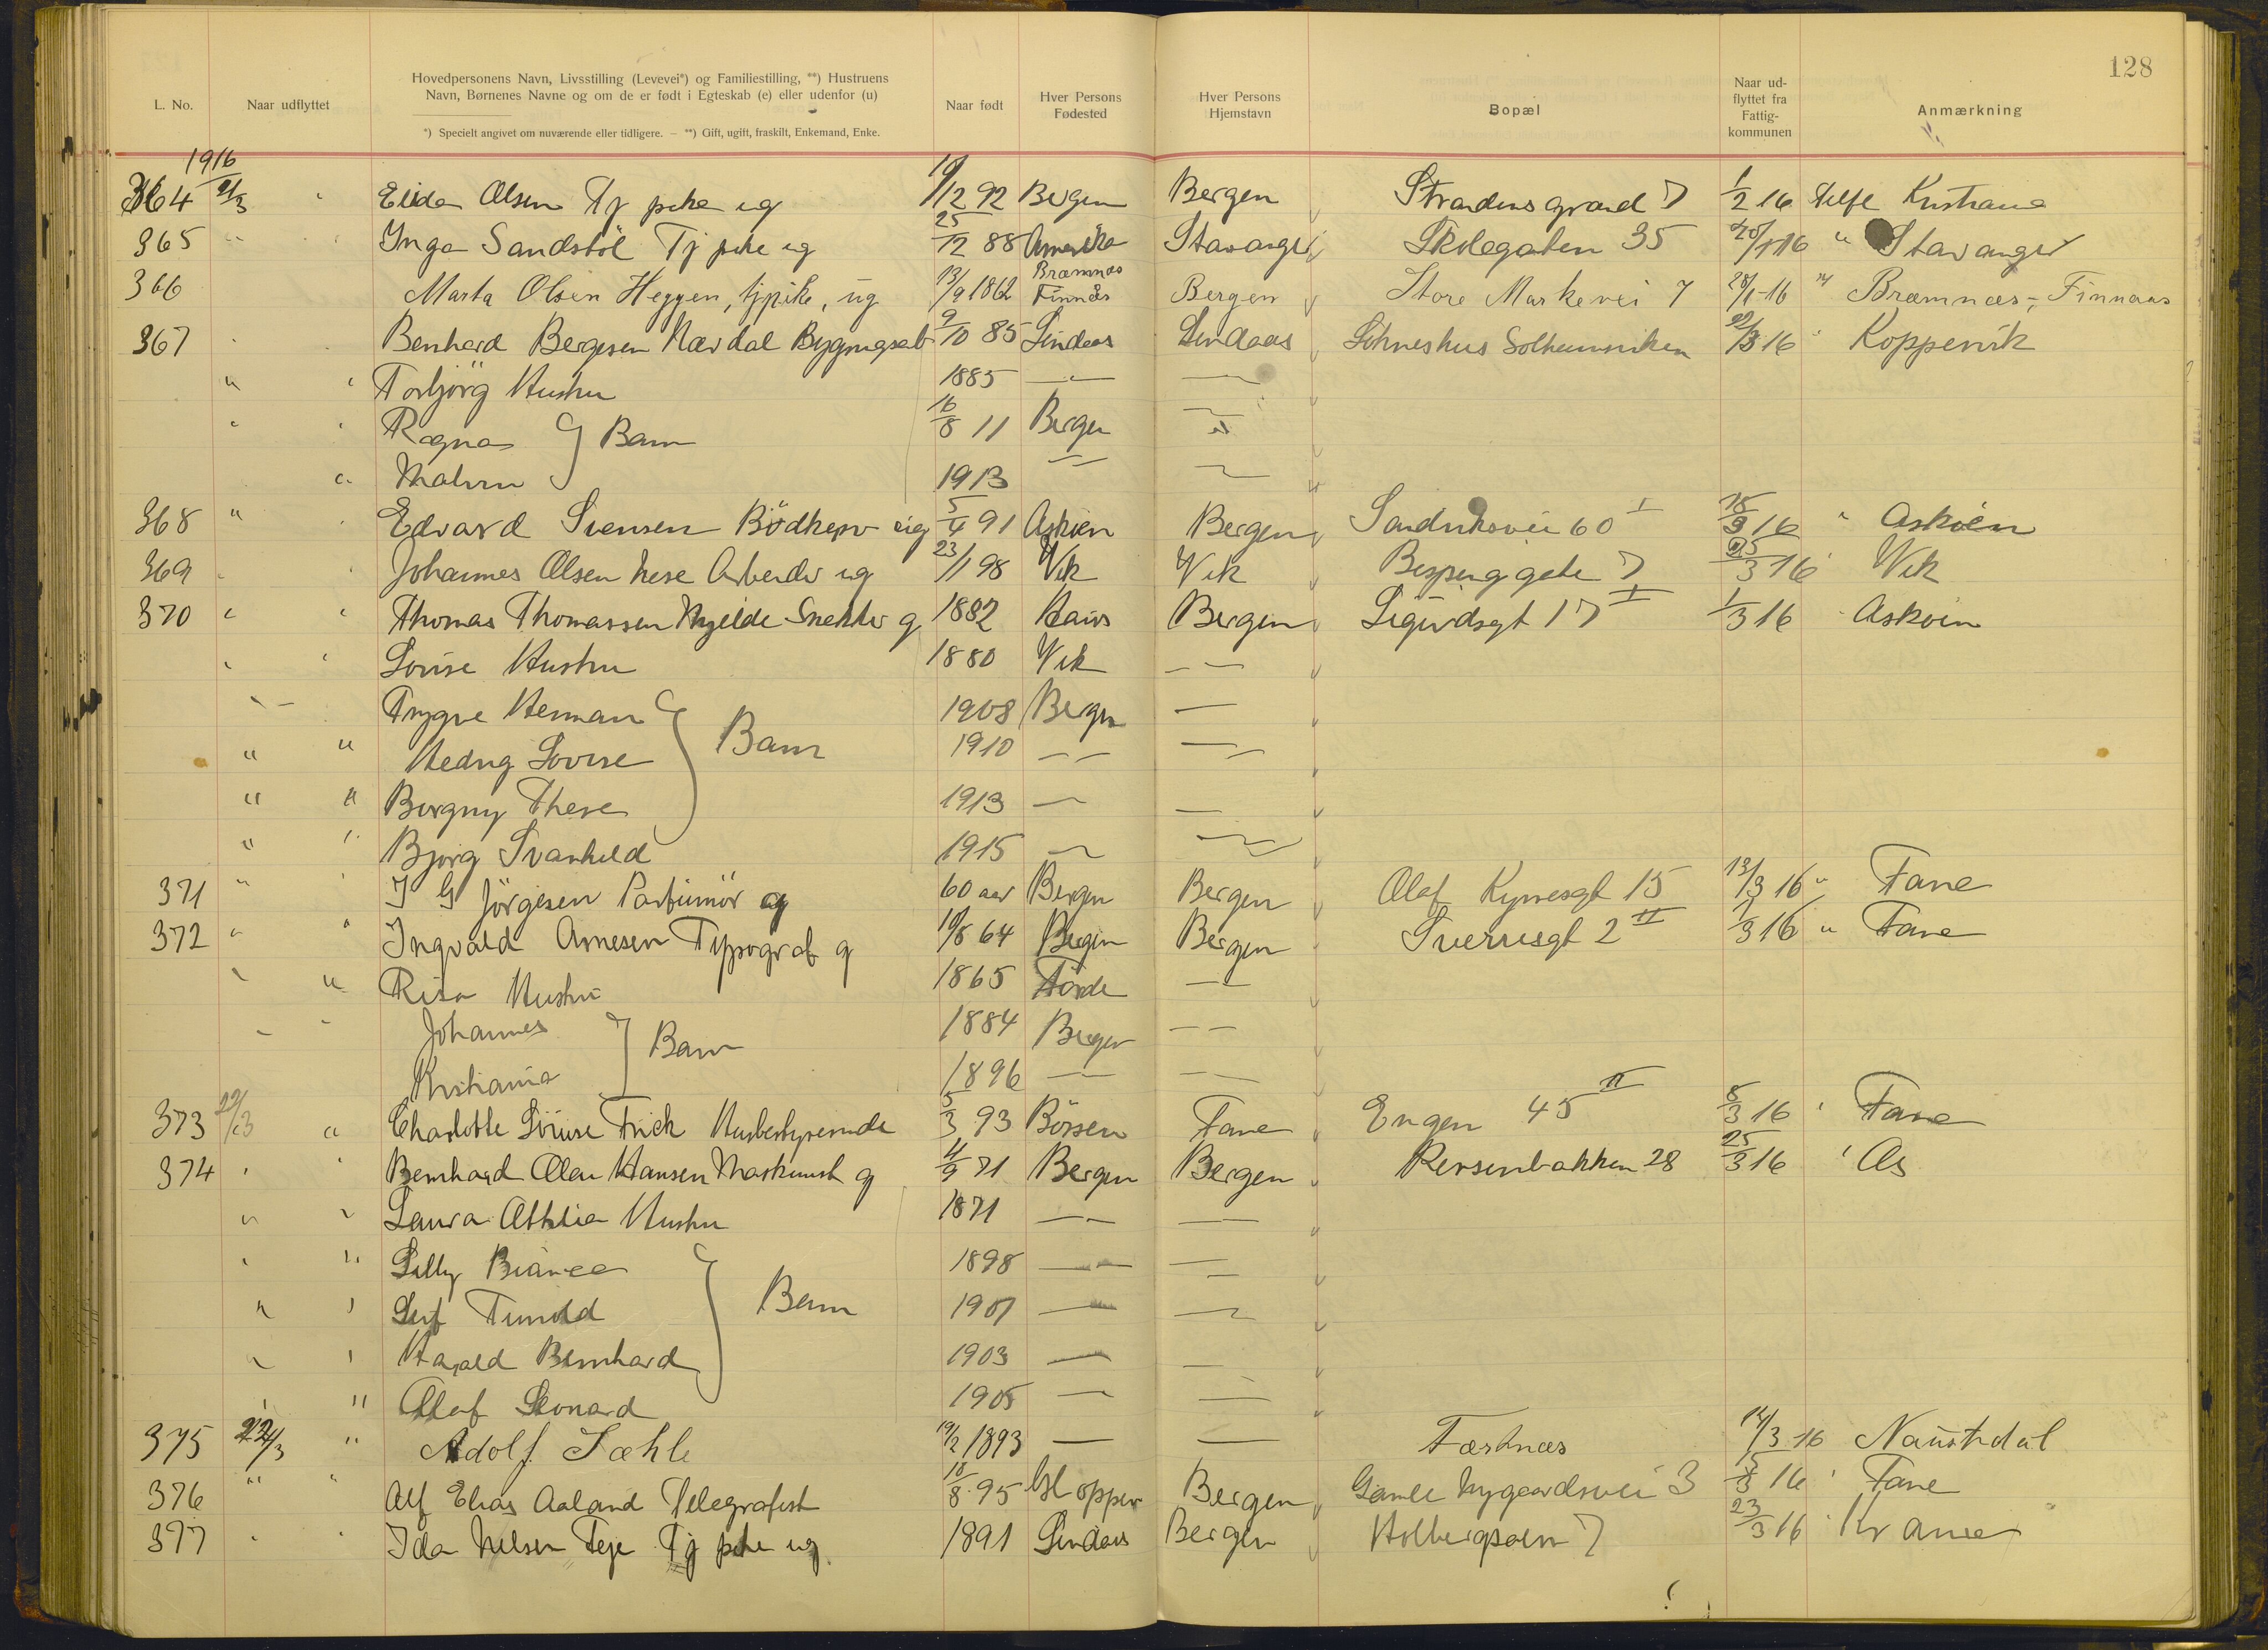 128
L. No.	Naar udflyttet	Hovedpersonens Navn, Livsstilling (Levevei*) og Familiestilling, **) Hustruens
Navn, Børnenes Navne og om de er født i Egteskab (e) eller udenfor (u)
*) Specielt angivet om nuværende eller tidligere. — **) Gift, ugift, fraskilt, Enkemand, Enke.
Naar født	Hver Persons Fødested	Hver Persons Hjemstavn	Bopæl	Naar ud-flyttet fra Fattig-kommunen	Anmærkning
1916
364 21/3 Elida Olsen Tj pike ug 12 92 Bergen Bergen Strandens grand 7 1/2 16 Kristiania
365 " Inga Sandstöl Tj pike ug 25/12 88 Amerika Stavanger Skolegaten 35 16 " Stavanger
366 Marta Olsen Heggen, tjpike, ug 13/9 1862 Bræmnæs Finnås Bergen Store Markevei 7 28/1-16 " Bræmnæs-, Finnaas
367 Benhard Bergesen Nævdal 9/10 85 Lindaas Lindaas Solheimsviken 16 Koppervik
" Torbjörg Hustru 1885 —"—
" Ragna } Barn 16/8 11 Bergen
" Malvin 1913
368 " Edvard Svensen Bödker ug 5/4 91 Askøen Bergen Sandviksvei 60 I 16 " Askøen
369 Johannes Olsen Nese Arbeider ug 23/1 98 Vik Vik gate 7 25/3 16 Vik
370 " " Thomas Thomassen Mjelde Snekker g 1882 Haus Bergen Sigurdsgt 17 I 1/3 16 Askøen
" " Lovise Hustru 1880 Vik — —
Trygve Herman 1908 Bergen —
" " Hedvig Lovise } Barn 1910 — —
" " Borgny There 1913 —
" " Bjorg Svanhild 1915 —
371 " J G Jörgesen Partfümör g 60 aar Bergen Bergen Olaf Kyrresgt 15 13/3 16 " Fane
372 " " Ingvald Arnesen Typograf g 64 Bergen Bergen Sverresgt 2 II 3 16 " Fane
" Hustru 1865 Förde — —
Johannes } Barn 1884 Bergen — —
Kristiania 1896 — —
373 22/3 " Charlotte Lovise Frick Husbestyrerinde 5/3 93 Börsen Fane Engen 45 II 8/3 16 " Fane
374 " " Bernhard Olau Hansen Maskinist g 4/9 71 Bergen Bergen 28 25/3 16 " Os
" " Laura Othilia Hustru 1871 — —
" " Lilly Bianca 1898 —
" " Leif } Barn 1901 —
" " Harald Bernhard 1903 —
" Olaf Leonard 1905 —
375 22/3 " Adolf Sæhle 19/2 1893 — — Fæstnæs 14/3 16 Naustdal
376 " " Alf Elias Aaland Telegrafist 18/8 95 Gloppen Bergen Gamle Nygaardsvei 3 16 " Fane
377 " " Ida Nelsen Feje Tj pike ug 1891 Lindaas Bergen 7 23/3 16 "